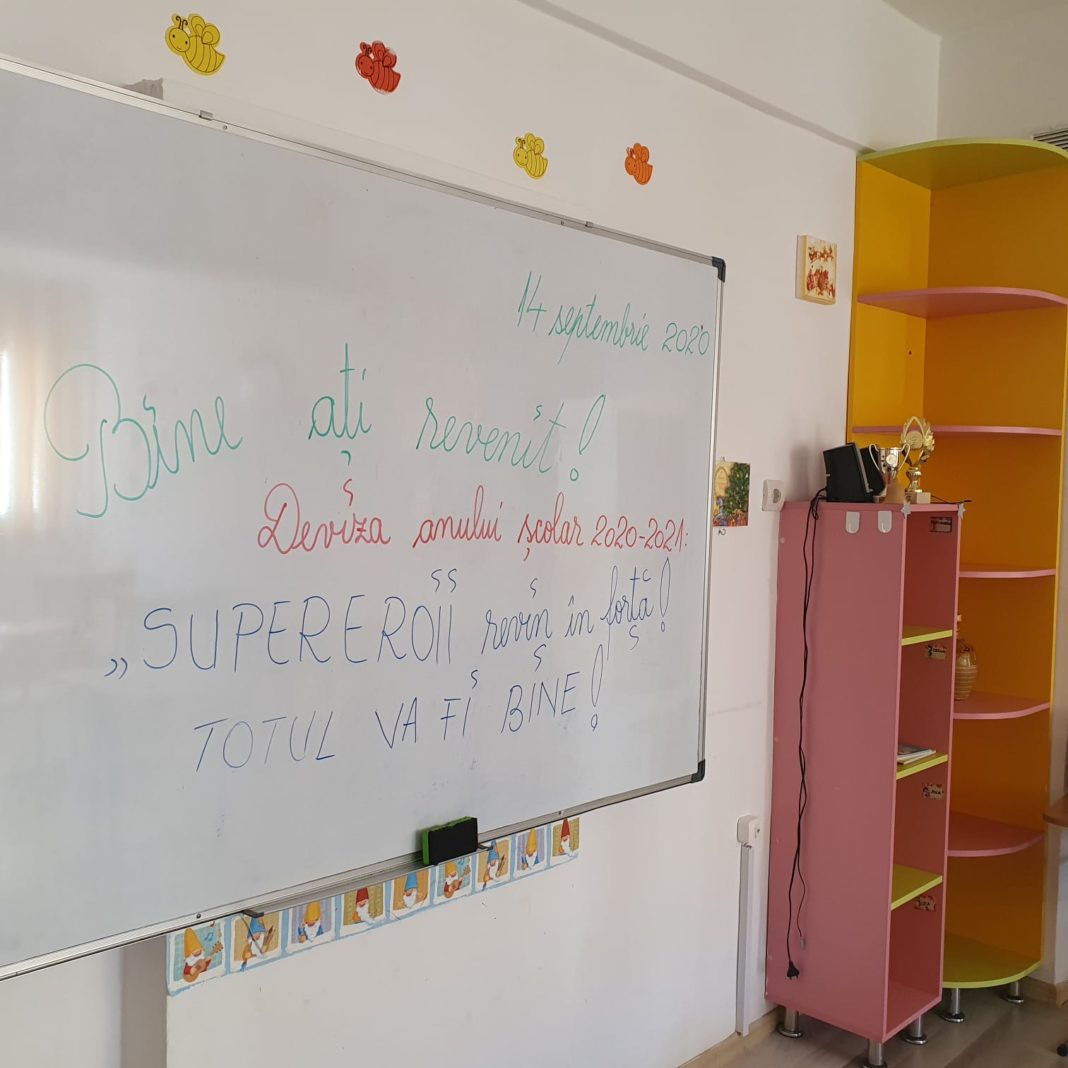 14 septembrie 2020
Bine ați revenit!
Deviza anului școlar 2020-2021:
„SUPEREROII revin în forță!
TOTUL VA FI BINE!